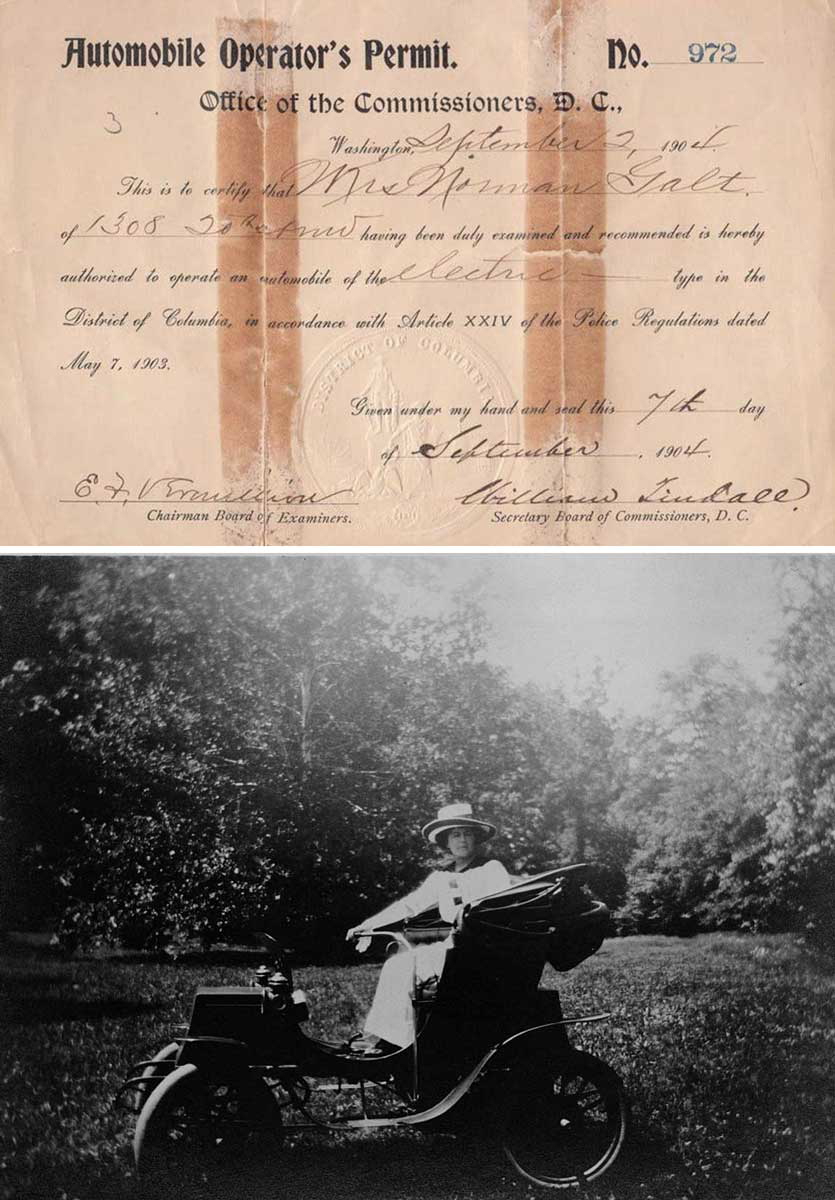 Automobile Operator's Permit. No. 972
Office of the Commissioners, D. C.,
3
Washington, September 2, 1904.
This is to certify that Mrs Norman Galt.
of 1308 20th St NW having been duly examined and recommended is hereby
authorized to operate an automobile of the electric type in the
District of Columbia, in accordance with Article XXIV of the Police Regulations dated
May 7, 1903.
DISTRICT OF COLUMBIA
Given under my hand and seal this 7th day
of September, 1904.
E. F. Vermillion William Tindall.
Chairman Board of Examiners. Secretary Board of Commissioners, D. C.